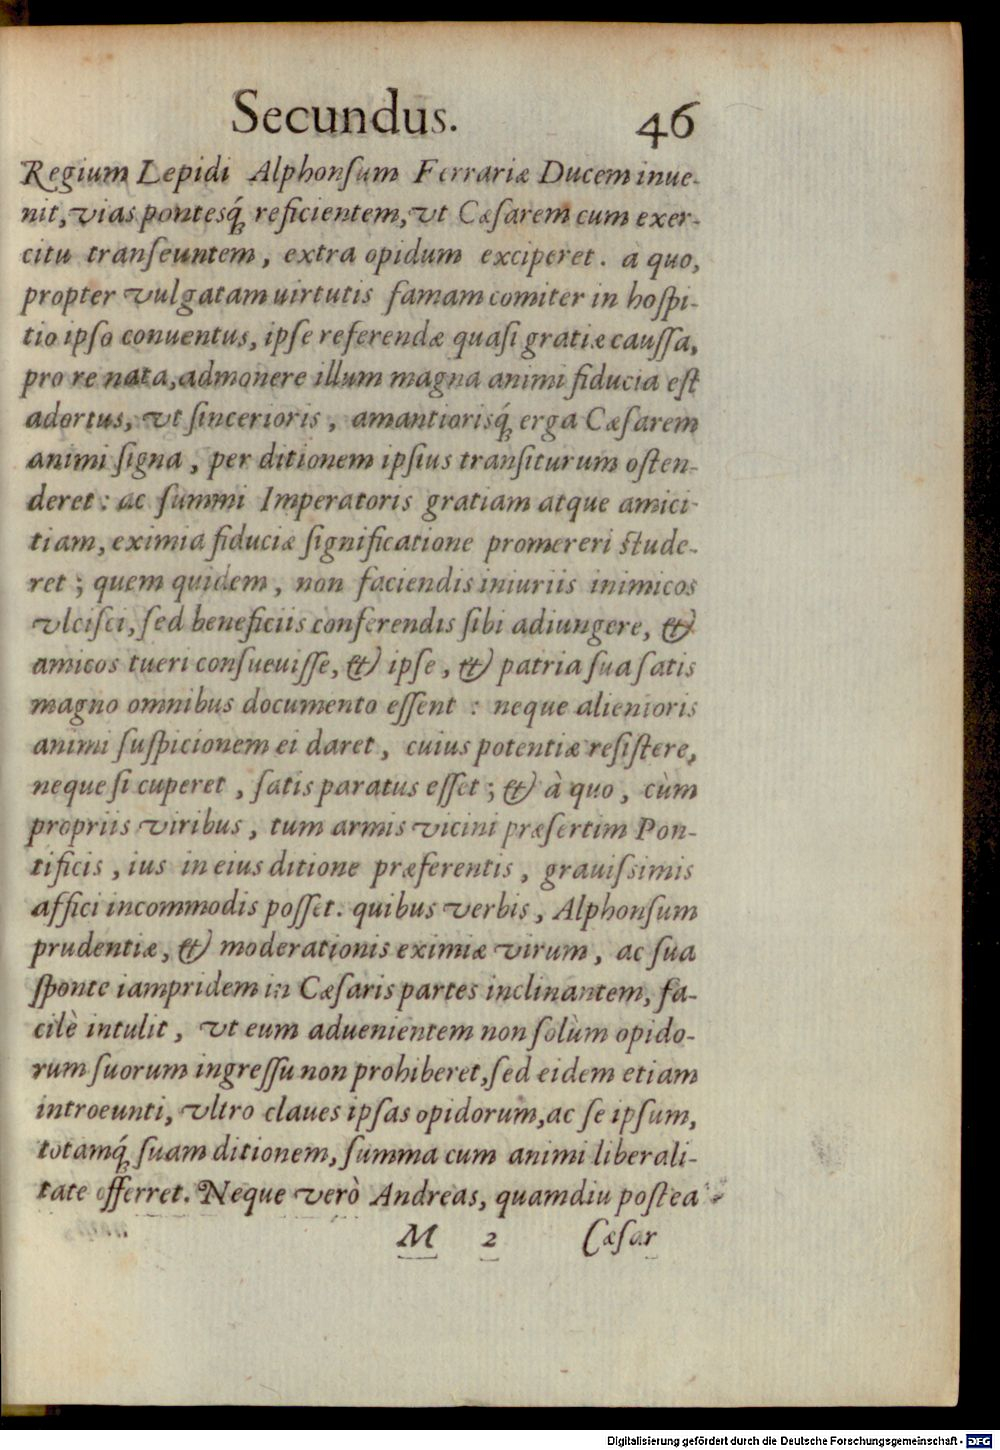 Secundus. 46
Regium Lepidi Alphonſum Ferrariæ Ducem inue-
nit, vias pontesq́; reficientem, vt Cæſarem cum exer-
citu tranſeuntem, extra opidum exciperet. à quo,
propter vulgatam uirtutis famam comiter in hoſpi-
tio ipſo conuentus, ipſe referendæ quaſi gratiæ cauſſa,
pro re nata, admonere illum magna animi fiducia eſt
adortus, vt ſincerioris, amantiorisq́; erga Cæſarem
animi ſigna, per ditionem ipſius tranſiturum oſten-
deret: ac ſummi Imperatoris gratiam atque amici-
tiam, eximia fiduciæ ſignificatione promereri ſtude-
ret; quem quidem, non faciendis iniuriis inimicos
vlciſci, ſed beneficiis conferendis ſibi adiungere, &
amicos tueri conſueuiſſe, & ipſe, & patria ſua ſatis
magno omnibus documento eſſent: neque alienioris
animi ſuſpicionem ei daret, cuius potentiæ reſiſtere,
neque ſi cuperet, ſatis paratus eſſet; & à quo, cùm
propriis viribus, tum armis vicini præſertim Pon-
tificis, ius in eius ditione præferentis, grauiſsimis
affici incommodis poſſet. quibus verbis, Alphonſum
prudentiæ, & moderationis eximiæ virum, ac ſua
ſponte iampridem in Cæſaris partes inclinantem, fa-
cilè intulit, vt eum aduenientem non ſolùm opido-
rum ſuorum ingreſſu non prohiberet, ſed eidem etiam
introeunti, vltro claues ipſas opidorum, ac ſe ipſum,
totamq́; ſuam ditionem, ſumma cum animi liberali-
tate offerret. Neque verò Andreas, quamdiu poſtea
M 2 Cæſar
Digitalisierung gefördert durch die Deutsche Forschungsgemeinschaft - DFG